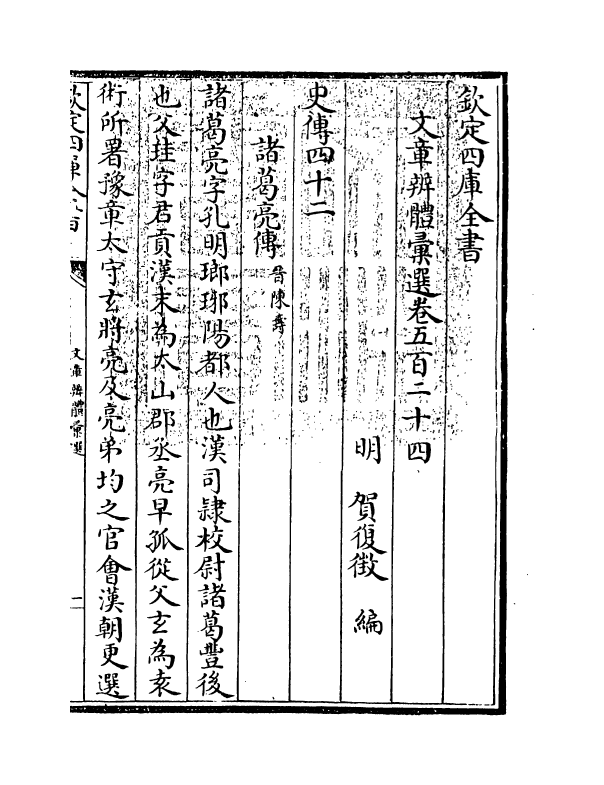 欽定四庫全書
文章辨體彙選卷五百二十四
明 賀復徵 編
史傳四十二
諸葛亮傳 晉陳壽
諸葛亮字孔明瑯琊陽都人也漢司隸校尉諸葛豐後
也父珪字君貢漢末為太山郡丞亮早孤從父玄為袁
術所署豫章太守玄將亮及亮弟均之官會漢朝更選
欽定四庫全書
文章辨體彙選